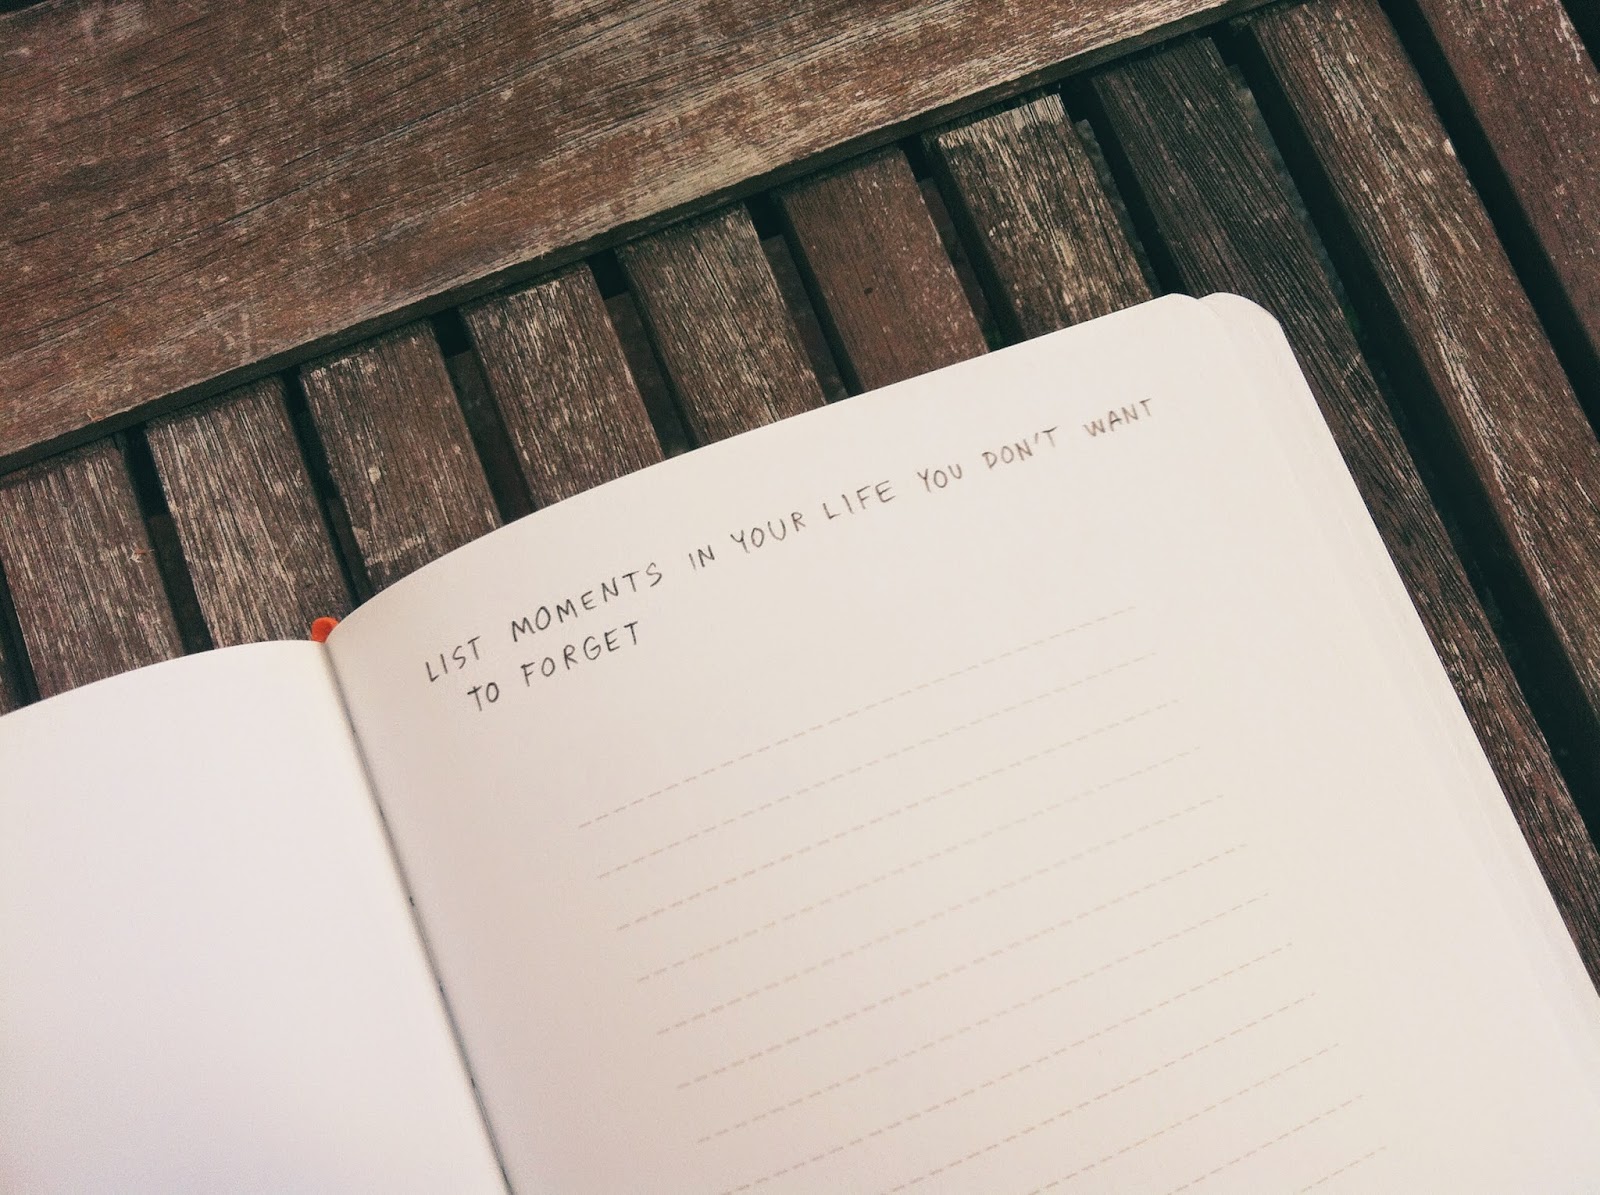 LIST MOMENTS IN YOUR LIFE YOU DON'T WANT
TO FORGET